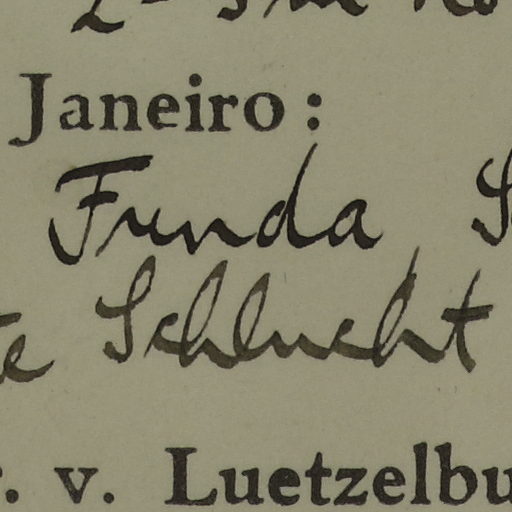 Janeiro:
Funda,
Schlucht
v. Luetzelbu